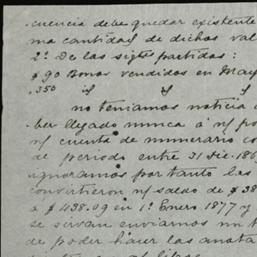 cuencia debe quedar existente
ma cantidad de dichos val
2º De las sigtes partidas:
$90 Bonos vendidos en May
.350 id id id
no teniamos noticia d
ber llegado nunca á n/ po
n/ cuenta de numerario co
de periodo entre 31 Dic. 186
ignoramos por tanto las
convirtieron n/ saldo de $38
á $438.09 en 1º Enero 1877 y
se sirvan enviarnos un t
de poder hacer las anota